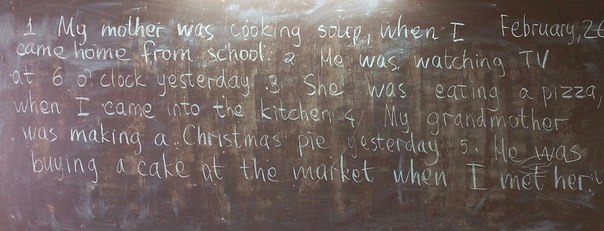 1 My mother was cooking soup, when I February, 26
came home from school. 2 He was watching TV
at 6 o'clock yesterday. 3. She was eating a pizza,
when I came into the kitchen 4. My grandmother
was making a Christmas pie yesterday 5. He was
buying a cake at the market when I met her.